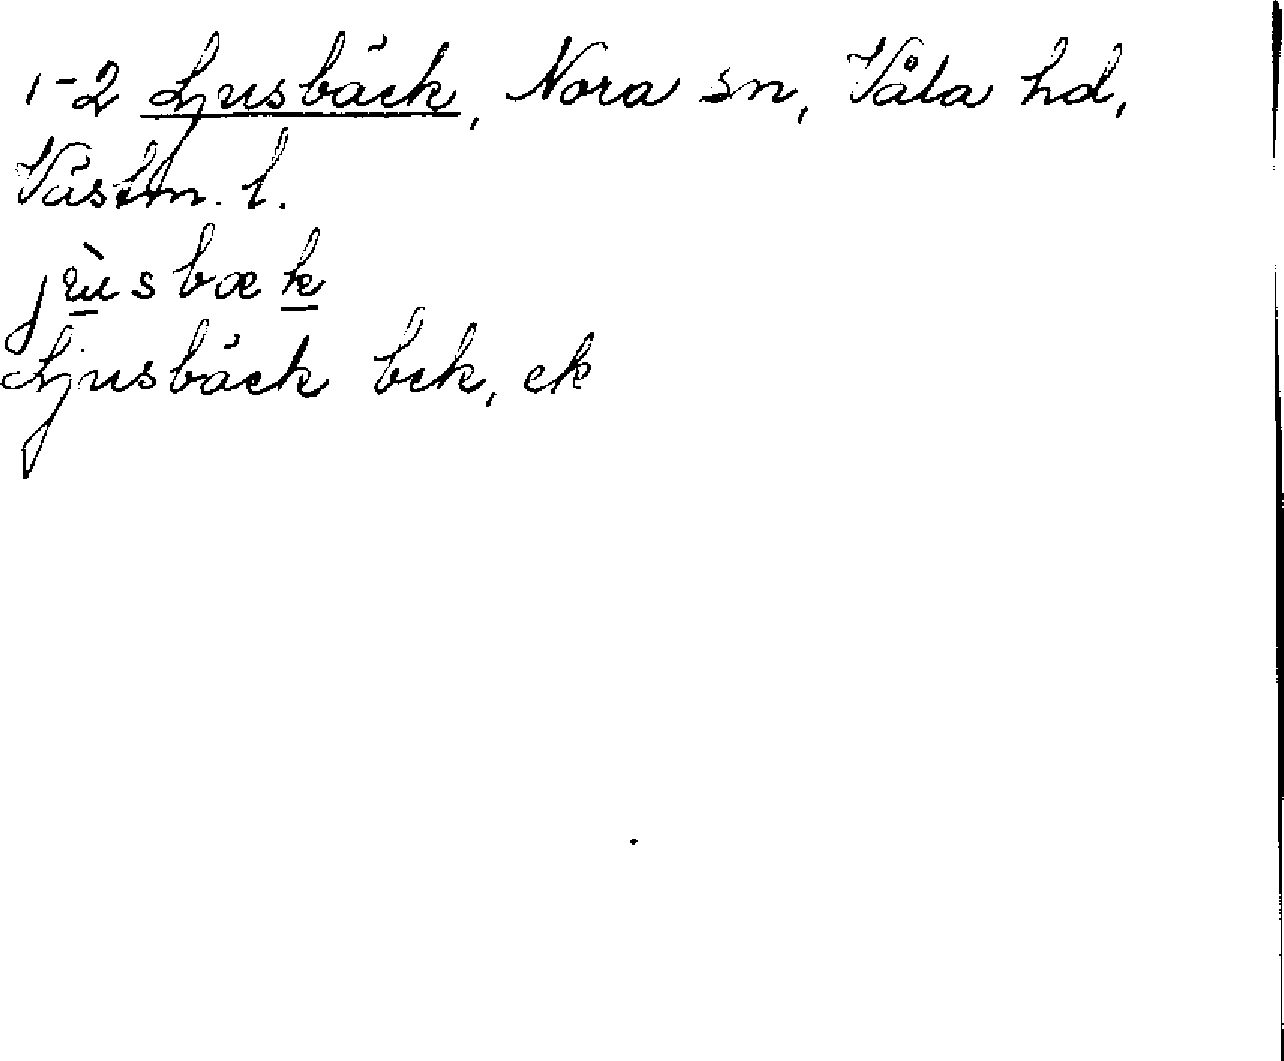 1-2 Ljusbäck, Nora sn, Våla hd,
Västm. l.
jùsbæk
Ljusbäck bck, ek